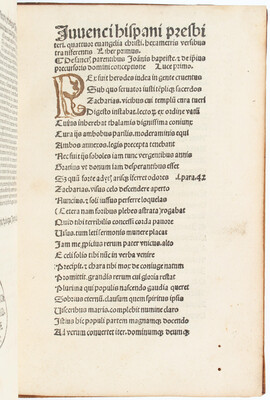 Juvenci hispani presbi
teri. quattuor evangelia christi. hexametris versibus
transferentis Liber primus.
De sanctis parentibus Joannis baptiste. & de ipsius
precursoris domini conceptione Luce primo.
REx fuit herodes iudea in gente cruentus
Sub quo servator iusti templique sacerdos
Zacharias. vicibus cui templi cura tueri
Digesto instabat. lecto ex ordine vatum
Huius inherebat thalamis dignissima coniunx
Cura his ambobus parilis. moderaminis equi
Ambos annexos. legis precepta tenebant
Nec fuit his soboles iam iunc vergentibus annis
Gratius ut donum iam desperantibus esset
Zacharias. visus celo descendere aperto
Nuncius. & soli iussus perferre loquelas
(Cetera nam foribus plebes astrata) rogabat
Quid tibi terribilis concessit corda pavore
Visus. cum leti sermonis munere placat
Jam me rerum pater unicus. alto
E celi solio tibi nunc in verba venire
Precipit. & chara tibi mox de coniuge natum
Promittit. grandis rerum cui gloria restat
Plurima qui populis nascendo gaudia queret
Sobrius eternum. clausum quem spiritus ipsis
Visceribus matris. complebit numine claro
Istius hic populi partem magnamque docendo
Ad verum convertet iter. dominumque deumque